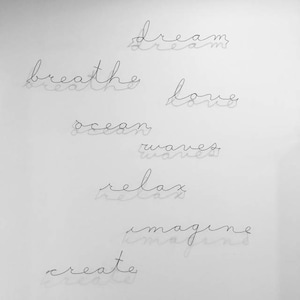 dream
breathe
love
ocean
waves
relax
imagine
create